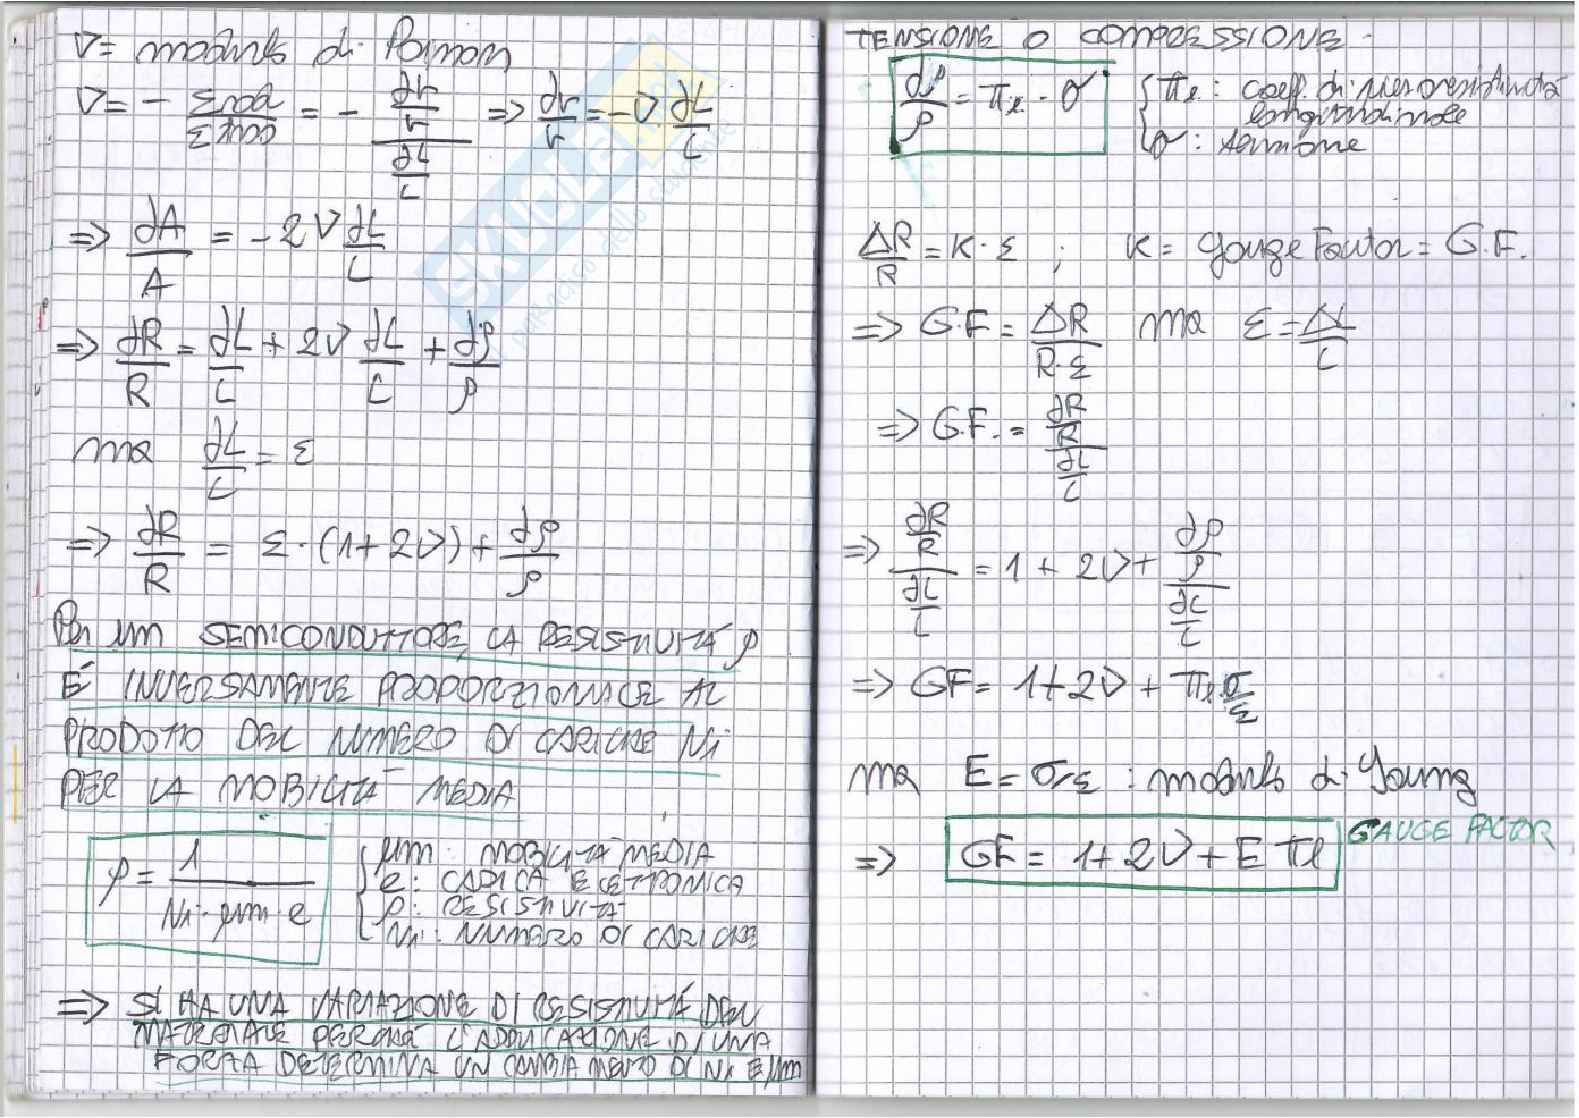 ν = modulo di Poisson
ν = - εrad/εlong = - (dr/r)/(dL/L) => dr/r = -ν dL/L
=> dA/A = -2ν dL/L
=> dR/R = dL/L + 2ν dL/L + dρ/ρ
ma dL/L = ε
=> dR/R = ε·(1+2ν) + dρ/ρ
Per un SEMICONDUTTORE, LA RESISTIVITÀ ρ
È INVERSAMENTE PROPORZIONALE AL
PRODOTTO DEL NUMERO DI CARICHE Ni
PER LA MOBILITÀ MEDIA
ρ = 1/(Ni·μm·e)
μm: MOBILITÀ MEDIA
e: CARICA ELETTRONICA
ρ: RESISTIVITÀ
Ni: NUMERO DI CARICHE
=> SI HA UNA VARIAZIONE DI RESISTIVITÀ DEL
MATERIALE PERCHÈ L'APPLICAZIONE DI UNA
FORZA DETERMINA UN CAMBIAMENTO DI Ni E μm
TENSIONE O COMPRESSIONE.
dρ/ρ = πl · σ
πl: coeff. di piezoresistività
longitudinale
σ: tensione
ΔR/R = K·ε ; K = Gauge Factor = G.F.
=> G.F. = ΔR/(R·ε) ma ε = ΔL/L
=> G.F. = (dR/R)/(dL/L)
=> (dR/R)/(dL/L) = 1 + 2ν + (dρ/ρ)/(dL/L)
=> GF = 1+2ν + πl σ/ε
ma E = σ/ε : modulo di Young
=> GF = 1+2ν + E πl GAUGE FACTOR